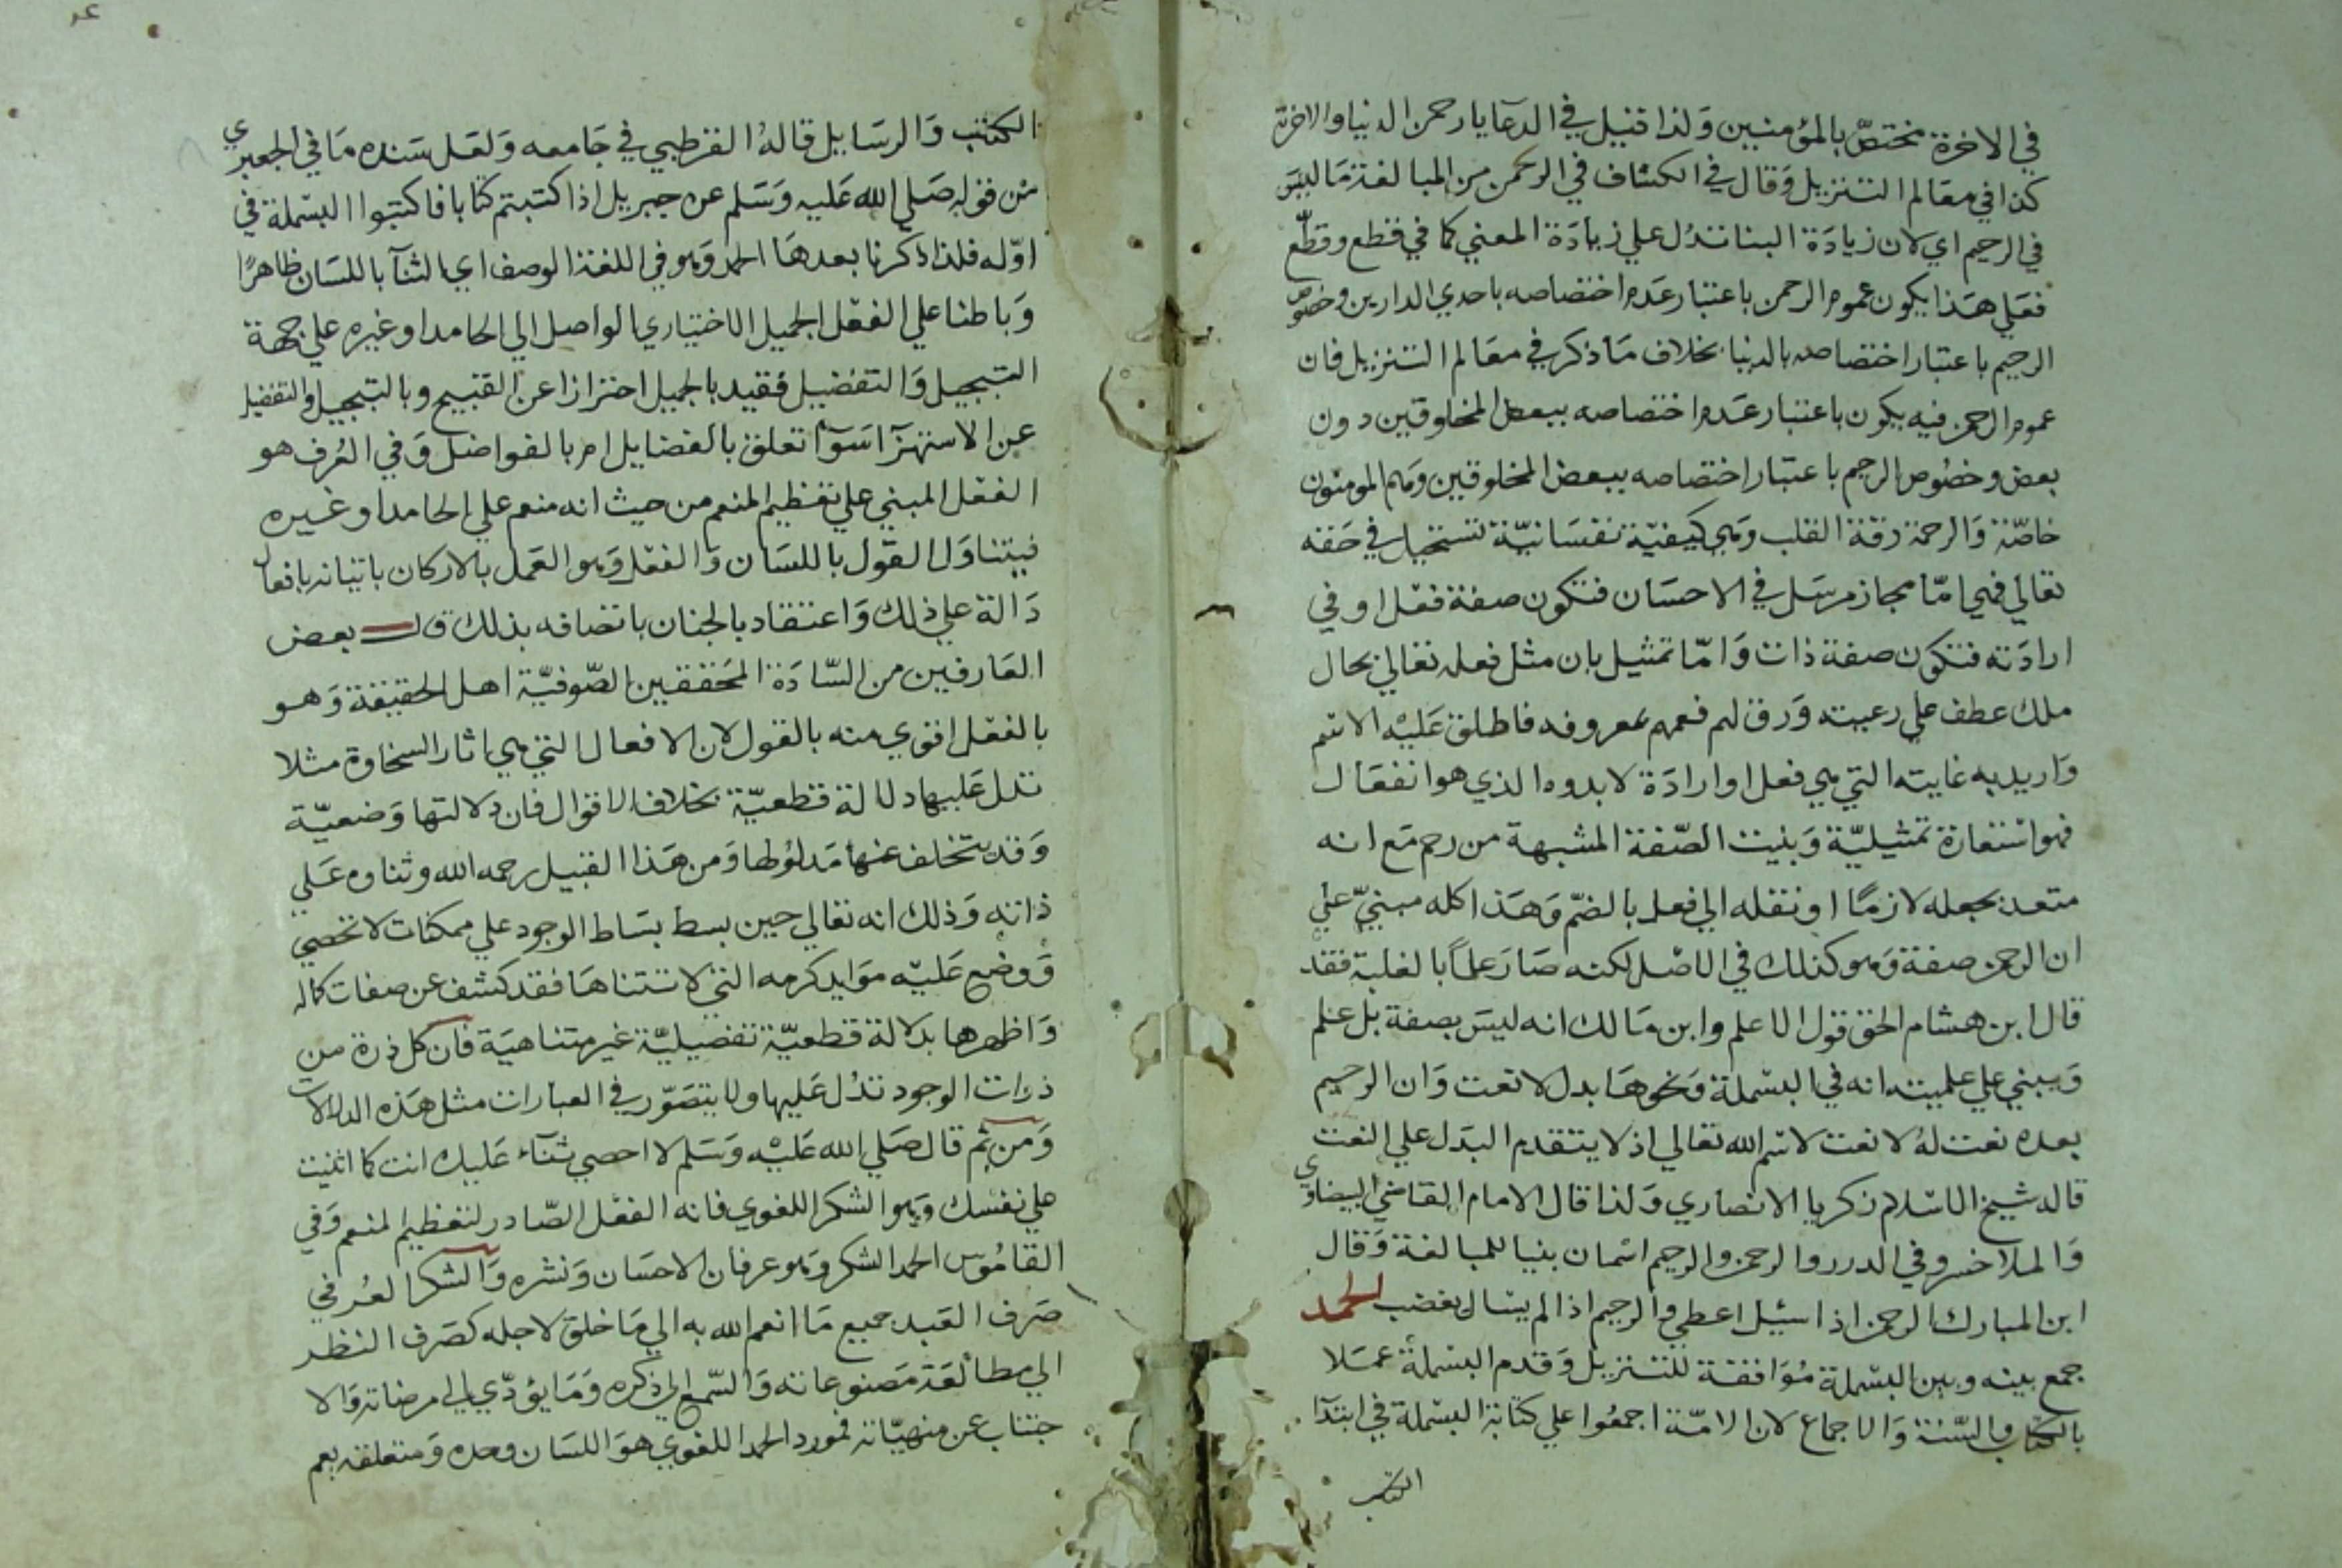 في الاخرة مختصّ بالمؤمنين وَلذا قيل في الدعآ يا رحمن الدنيا والاخرة
كذا في معَالم التنزيل وَقال في الكشاف في الرحمن من المبالغة مَا ليسَ
في الرحيم اي لان زيادَة البنا تدُل علي زيادَة المعني كما في قطع وقطّع
فعَلي هَذا يكون عموم الرحمن باعتبار عَدم اختصاصه باحدي الدارين وخصوص
الرحيم باعتبار اختصاصه بالدنيا بخلاف مَا ذكر في معَالم التنزيل فان
عموم الرحمن فيه يكون باعتبار عَدم اختصاصه ببعض المخلوقين دون
بعض وخصُوص الرحيم باعتبار اختصاصه ببعض المخلوقين وَهم المومنون
خاصّة وَالرحمة رقة القلب وَهي كيفيّة نفسَانيّة تستحيل في حَقه
تعالي فهي امّا مجاز مرسَل في الاحسَان فتكون صفة فعْل او في
ارادَته فتكون صفة ذات وَامّا تمثيل بان مثل فعله تعَالي بحال
ملك عطف علي رعيته وَرق لهم فعمهم بمعروفه فاطلق عَليْه الاسْم
وَاريد به غايته التي هي فعل او ارادَة لا بدوه الذي هو انفعَال
فهو استعارة تمثيليّة وَبنيت الصّفة المشبهة من رحم مَع انه
متعد بجعله لازمًا او نقله الي فعل بالضمّ وَهَذا كله مبنيّ علي
ان الرحمن صفة وَهو كذلك في الاصْل لكنه صَارَ علماً بالغلبة فقد
قال ابن هشام الحق قول الاعلم وابن مَالك انه ليسَ بصفة بل علم
وَيبني علي علميته انه في البسْملة وَنحوهَا بدل لا نعت وَان الرحيم
بعده نعت لهُ لا نعت لاسْم الله تعَالي اذ لا يتقدم البدَل علي النعت
قاله شيخ الاسْلام زكريا الانصاري وَلذا قال الامام القاضي البيضاوي
وَالملا خسرو في الدرر والرحمن والرحيم اسْمان بنيا للمبالغة وَقال
ابن المبارك الرحمن اذا سُئِل اعطي والرحيم اذا لم يسال يغضب الحمد
جمع بينه وبين البسْملة مُوَافقة للتنزيل وَقدم البسْملة عمَلا
بالكتاب والسّنة وَالاجماع لان الامّة اجمعُوا علي كتابة البسْملة في ابتدآ
الكتب
الكتب وَالرسَايل قالهُ القرطبي في جَامعه وَلعَل سَنده مَا في الجعبري
من قوله صَلي الله عَليه وَسَلم عن جبريل اذا كتبتم كتابا فاكتبوا البسْملة في
اوّله فلذا ذكرنا بعدهَا الحمد وَهو في اللغة الوصف اي الثنآ باللسَان ظاهرًا
وَباطنا علي الفعْل الجميل الاختياري الواصل الي الحامد او غيره علي جهة
التبجيل وَالتفضيل فقيد بالجميل احترازا عن القبيح وبالتبجيل والتفضيل
عن الاستهزآ سَوآ تعلق بالفضايل ام بالفواضل وَفي العُرف هو
الفعْل المبني علي تعْظيم المنعم من حيث انه منعم علي الحامد او غيره
فيتناوَل القول باللسَان وَالفعْل وَهو العَمل بالاركان باتيانه بافعال
دَالة علي ذلك وَاعتقاد بالجنان باتصافه بذلك قال بعض
العَارفين من السّادَة المحَققين الصّوفيّة اهل الحقيقة وَهو
بالفعْل اقوي منه بالقول لان الافعال التي هي اثار السخاوة مثلا
تدل عَليهَا دلالة قطعيّة بخلاف الاقوال فان دلالتها وَضعيّة
وَقد يتخلف عنها مَدلولها وَمن هَذا القبيل رحمه الله وثناوه عَلي
ذاته وَذلك انه تعَالي حين بسط بسَاط الوجود علي ممكنات لا تحْصي
وَوضع عَليْه موَايد كرمه التي لا تتناهَا فقد كشف عن صفات كماله
وَاظهرها بدلالة قطعيّة تفصيليّة غير متناهيَة فان كل ذرة من
ذرات الوجود تدُل عَليها ولا يتصَوّر في العبارات مثل هَذه الدلالات
وَمن ثم قال صَلي الله عَليْه وَسَلم لا احصي ثنآء عَليك انت كما اثنيت
علي نفسك وَهو الشكر اللغوي فانه الفعْل الصّادر لتعْظيم المنعم وَفي
القامُوس الحمد الشكر وَهو عرفان الاحسَان وَنشره وَالشكر العُرفي
صَرف العَبد جميع مَا انعم الله به الي مَا خلق لاجله كصَرف النظر
الي مطالعَة مَصنوعاته وَالسّمع الي ذكره وَمَا يؤدّي الي مرضاته وَالا
جتناب عن منهيّاته فمورد الحمد اللغوي هوَ اللسَان وحده وَمتعلقه يعم